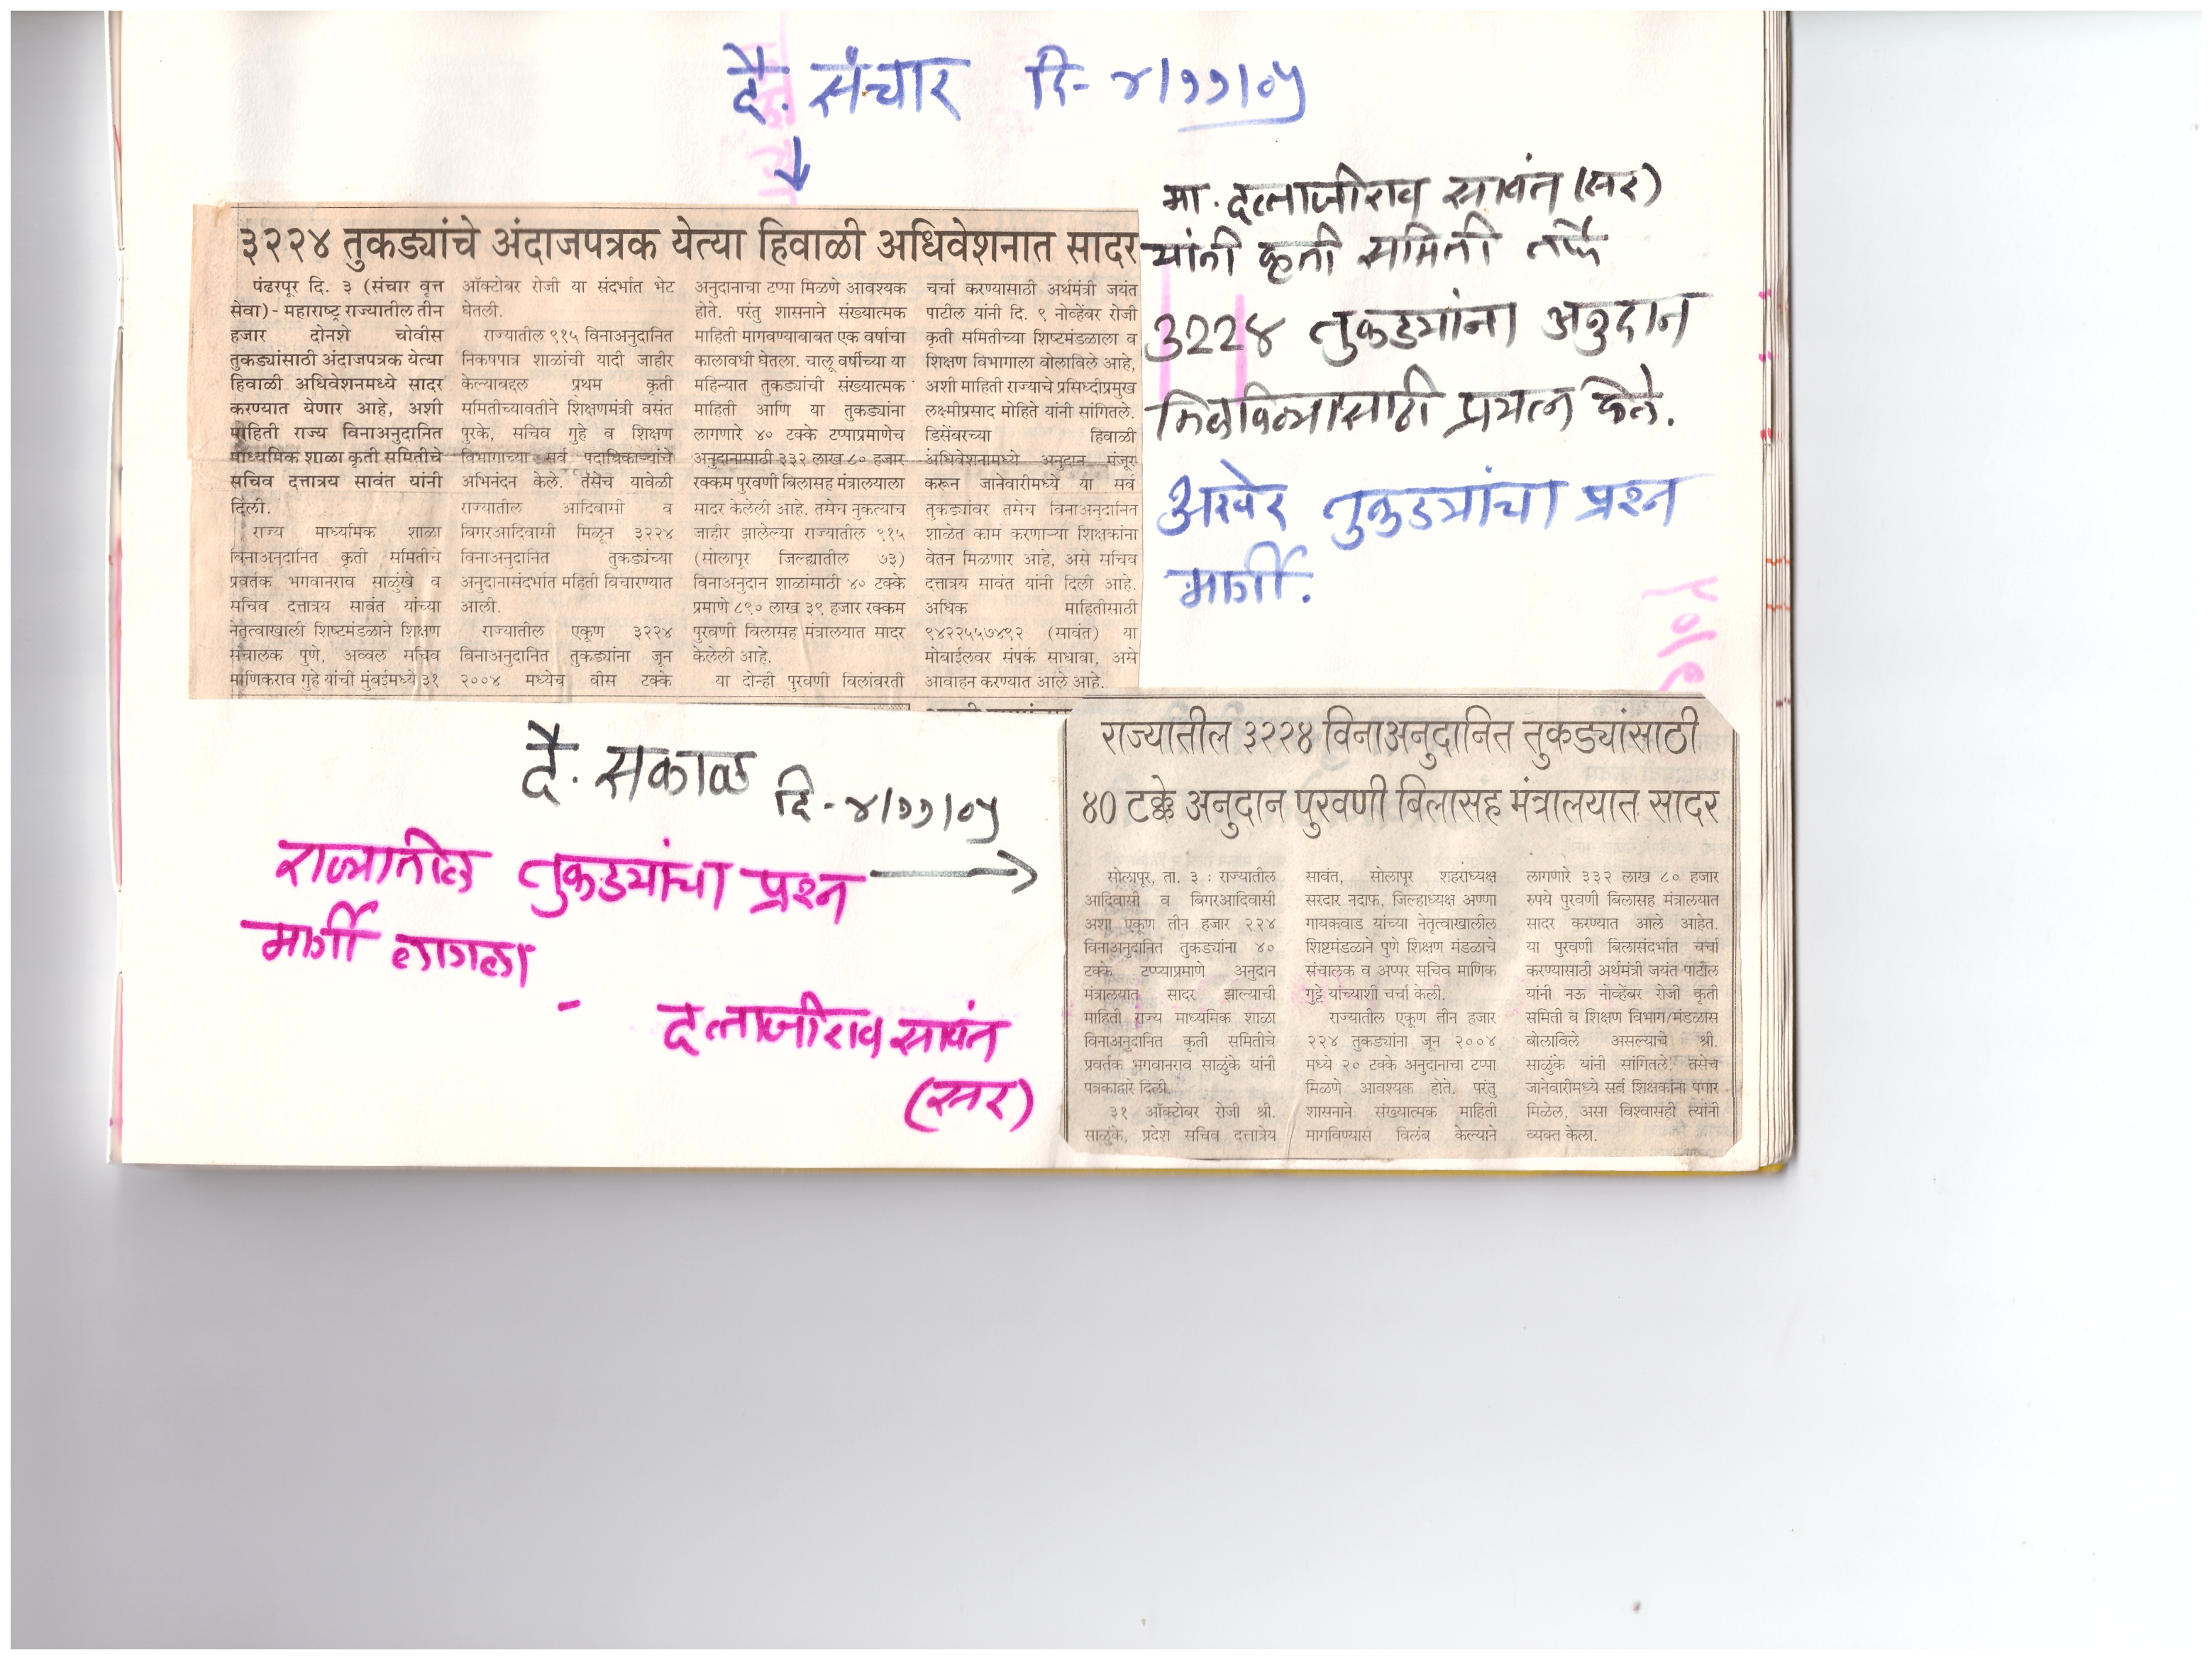 दै. संचार दि- ४/११/०५
३२२४ तुकड्यांचे अंदाजपत्रक येत्या हिवाळी अधिवेशनात सादर
पंढरपूर दि. ३ (संचार वृत्त
सेवा) - महाराष्ट्र राज्यातील तीन
हजार दोनशे चोवीस
तुकड्यांसाठी अंदाजपत्रक येत्या
हिवाळी अधिवेशनमध्ये सादर
करण्यात येणार आहे, अशी
माहिती राज्य विनाअनुदानित
माध्यमिक शाळा कृती समितीचे
सचिव दत्तात्रय सावंत यांनी
दिली.
राज्य माध्यमिक शाळा
विनाअनुदानित कृती समितीचे
प्रवर्तक भगवानराव साळुंखे व
सचिव दत्तात्रय सावंत यांच्या
नेतृत्वाखाली शिष्टमंडळाने शिक्षण
संचालक पुणे, अव्वल सचिव
माणिकराव गुहे यांची मुंबईमध्ये ३१
ऑक्टोबर रोजी या संदर्भात भेट
घेतली.
राज्यातील ९१५ विनाअनुदानित
निकषपात्र शाळांची यादी जाहीर
केल्याबद्दल प्रथम कृती
समितीच्यावतीने शिक्षणमंत्री वसंत
पुरके, सचिव गुहे व शिक्षण
विभागाच्या सर्व पदाधिकाऱ्यांचे
अभिनंदन केले. तसेच यावेळी
राज्यातील आदिवासी व
बिगरआदिवासी मिळून ३२२४
विनाअनुदानित तुकड्यांच्या
अनुदानासंदर्भात महिती विचारण्यात
आली.
राज्यातील एकूण ३२२४
विनाअनुदानित तुकड्यांना जून
२००४ मध्येच वीस टक्के
अनुदानाचा टप्पा मिळणे आवश्यक
होते. परंतु शासनाने संख्यात्मक
माहिती मागवण्याबाबत एक वर्षाचा
कालावधी घेतला. चालू वर्षीच्या या
महिन्यात तुकड्यांची संख्यात्मक
माहिती आणि या तुकड्यांना
लागणारे ४० टक्के टप्पाप्रमाणेच
अनुदानासाठी ३३२ लाख ८० हजार
रक्कम पुरवणी बिलासह मंत्रालयाला
सादर केलेली आहे. तसेच नुकत्याच
जाहीर झालेल्या राज्यातील ९१५
(सोलापूर जिल्ह्यातील ७३)
विनाअनुदान शाळांसाठी ४० टक्के
प्रमाणे ८९० लाख ३९ हजार रक्कम
पुरवणी बिलासह मंत्रालयात सादर
केलेली आहे.
या दोन्ही पुरवणी बिलांवरती
चर्चा करण्यासाठी अर्थमंत्री जयंत
पाटील यांनी दि. ९ नोव्हेंबर रोजी
कृती समितीच्या शिष्टमंडळाला व
शिक्षण विभागाला बोलाविले आहे,
अशी माहिती राज्याचे प्रसिध्दीप्रमुख
लक्ष्मीप्रसाद मोहिते यांनी सांगितले.
डिसेंबरच्या हिवाळी
अधिवेशनामध्ये अनुदान मंजूर
करून जानेवारीमध्ये या सर्व
तुकड्यांवर तसेच विनाअनुदानित
शाळेत काम करणाऱ्या शिक्षकांना
वेतन मिळणार आहे, असे सचिव
दत्तात्रय सावंत यांनी दिली आहे.
अधिक माहितीसाठी
९४२२५५७४९२ (सावंत) या
मोबाईलवर संपर्क साधावा, असे
आवाहन करण्यात आले आहे.
मा. दत्ताजीराव सावंत (सर)
यांनी कृती समिती तर्फे
3228 तुकड्यांना अनुदान
मिळविण्यासाठी प्रयत्न केले.
अखेर तुकड्यांचा प्रश्न
मार्गी.
दै. सकाळ दि- ४/११/०५
राज्यातील तुकड्यांचा प्रश्न
मार्गी लागला
- दत्ताजीराव सावंत
(सर)
राज्यातील ३२२४ विनाअनुदानित तुकड्यांसाठी
४० टक्के अनुदान पुरवणी बिलासह मंत्रालयात सादर
सोलापूर, ता. ३ : राज्यातील
आदिवासी व बिगरआदिवासी
अशा एकूण तीन हजार २२४
विनाअनुदानित तुकड्यांना ४०
टक्के टप्प्याप्रमाणे अनुदान
मंत्रालयात सादर झाल्याची
माहिती राज्य माध्यमिक शाळा
विनाअनुदानित कृती समितीचे
प्रवर्तक भगवानराव साळुंके यांनी
पत्रकाद्वारे दिली.
३१ ऑक्टोबर रोजी श्री.
साळुंके, प्रदेश सचिव दत्तात्रेय
सावंत, सोलापूर शहराध्यक्ष
सरदार नदाफ, जिल्हाध्यक्ष अण्णा
गायकवाड यांच्या नेतृत्वाखालील
शिष्टमंडळाने पुणे शिक्षण मंडळाचे
संचालक व अप्पर सचिव माणिक
गुट्टे यांच्याशी चर्चा केली.
राज्यातील एकूण तीन हजार
२२४ तुकड्यांना जून २००४
मध्ये २० टक्के अनुदानाचा टप्पा
मिळणे आवश्यक होते. परंतु
शासनाने संख्यात्मक माहिती
मागविण्यास विलंब केल्याने
लागणारे ३३२ लाख ८० हजार
रुपये पुरवणी बिलासह मंत्रालयात
सादर करण्यात आले आहेत.
या पुरवणी बिलासंदर्भात चर्चा
करण्यासाठी अर्थमंत्री जयंत पाटील
यांनी नऊ नोव्हेंबर रोजी कृती
समिती व शिक्षण विभाग/मंडळास
बोलाविले असल्याचे श्री.
साळुंके यांनी सांगितले. तसेच
जानेवारीमध्ये सर्व शिक्षकांना पगार
मिळेल, असा विश्वासही त्यांनी
व्यक्त केला.